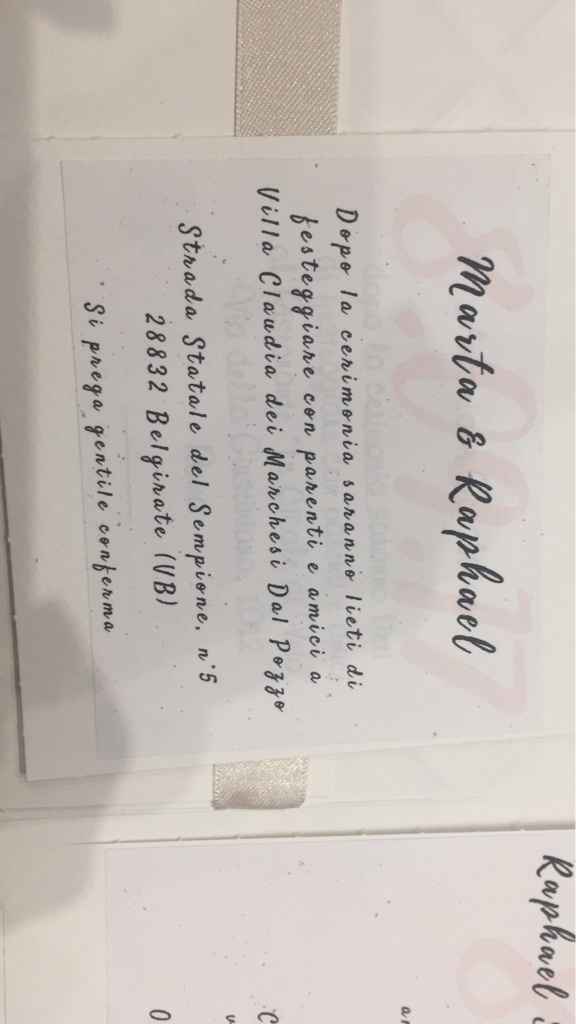 8.09.17
Marta & Raphael
Dopo la cerimonia saranno lieti di
festeggiare con parenti e amici a
Villa Claudia dei Marchesi Dal Pozzo
Strada Statale del Sempione, n°5
28832 Belgirate (VB)
Si prega gentile conferma
Raphael